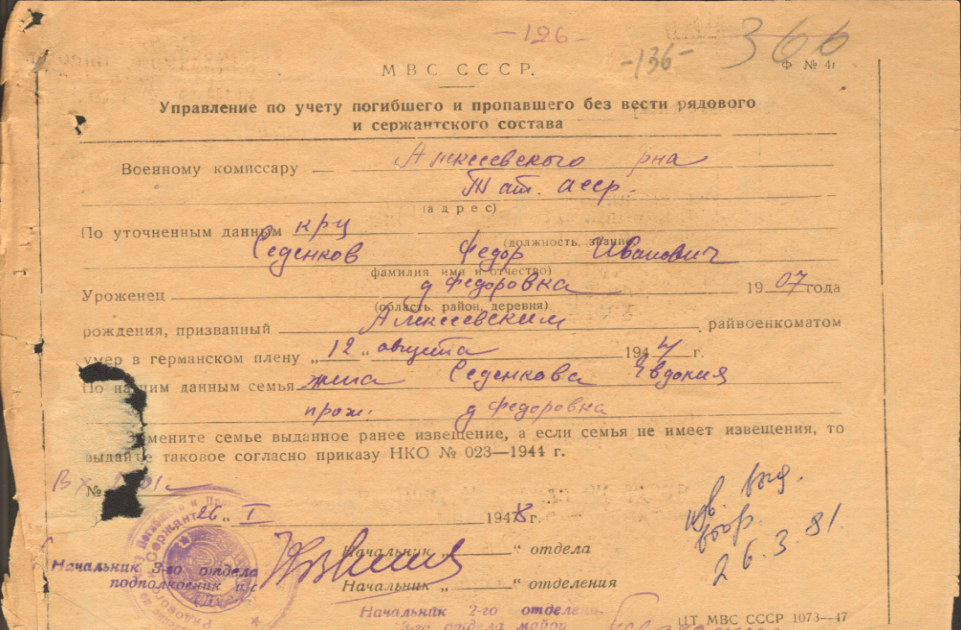 -126-
-136-
366
МВС СССР.
Ф № 4г
Управление по учету погибшего и пропавшего без вести рядового
и сержантского состава
Военному комиссару Алексеевского рна
Тат. асср.
(адрес)
По уточненным данным крц
(должность, звание
Седенков Федор Иванович
фамилия имя и отчество)
Уроженец д Федоровка 1907 года
(область, район, деревня)
рождения, призванный Алексеевским райвоенкоматом
умер в германском плену „12“ августа 1944 г.
По нашим данным семья жена Седенкова Евдокия
прож. д Федоровка
Замените семье выданное ранее извещение, а если семья не имеет извещения, то
выдайте таковое согласно приказу НКО № 023—1944 г.
Вх
№
26 „ I 1948 г.
26.3.81.
Начальник „ “ отдела
Начальник 3-го отдела
подполковник и/с
Начальник „ “ отделения
Начальник 2-го отделения
3-го отдела майор
ЦТ МВС СССР 1073—47